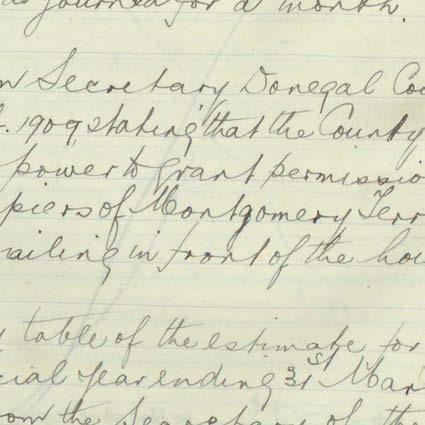 journed for a month.
m Secretary Donegal Cou
. 1909, stating that the County
power to grant permissio
piers of Montgomery Terr
railing in front of the hou
table of the estimate for
cial year ending 31st Mar
rom the Secretary of the